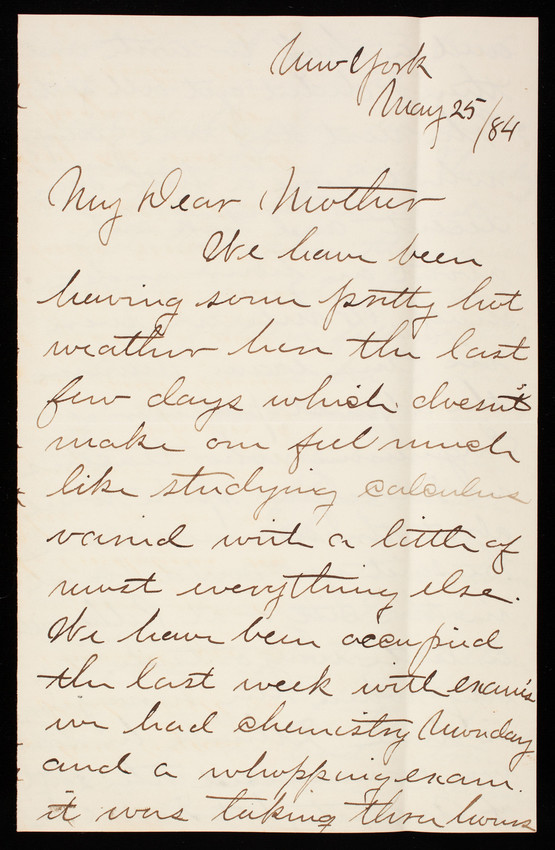 New York
May 25/84
My Dear Mother
We have been
having some pretty hot
weather here the last
few days which doesn't
make one feel much
like studying calculus
varied with a little of
most everything else.
We have been occupied
the last week with exam's
we had chemistry Monday
and a whopping exam.
it was taking three hours